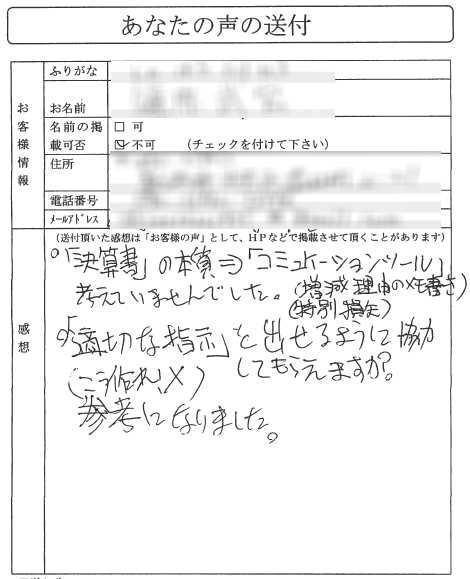 あなたの声の送付
お客様情報
ふりがな
お名前
名前の掲載可否
□ 可
☑ 不可 (チェックを付けて下さい)
住所
電話番号
メールアドレス
感想
(送付頂いた感想は「お客様の声」として、HPなどで掲載させて頂くことがあります)
○「決算書」の本質⇒「コミュニケーションツール」
考えていませんでした。(増減理由のメモ書き)
(特別損失)
○「適切な指示」を出せるように協力
(こう作れ、×) してもらえますか?
参考になりました。